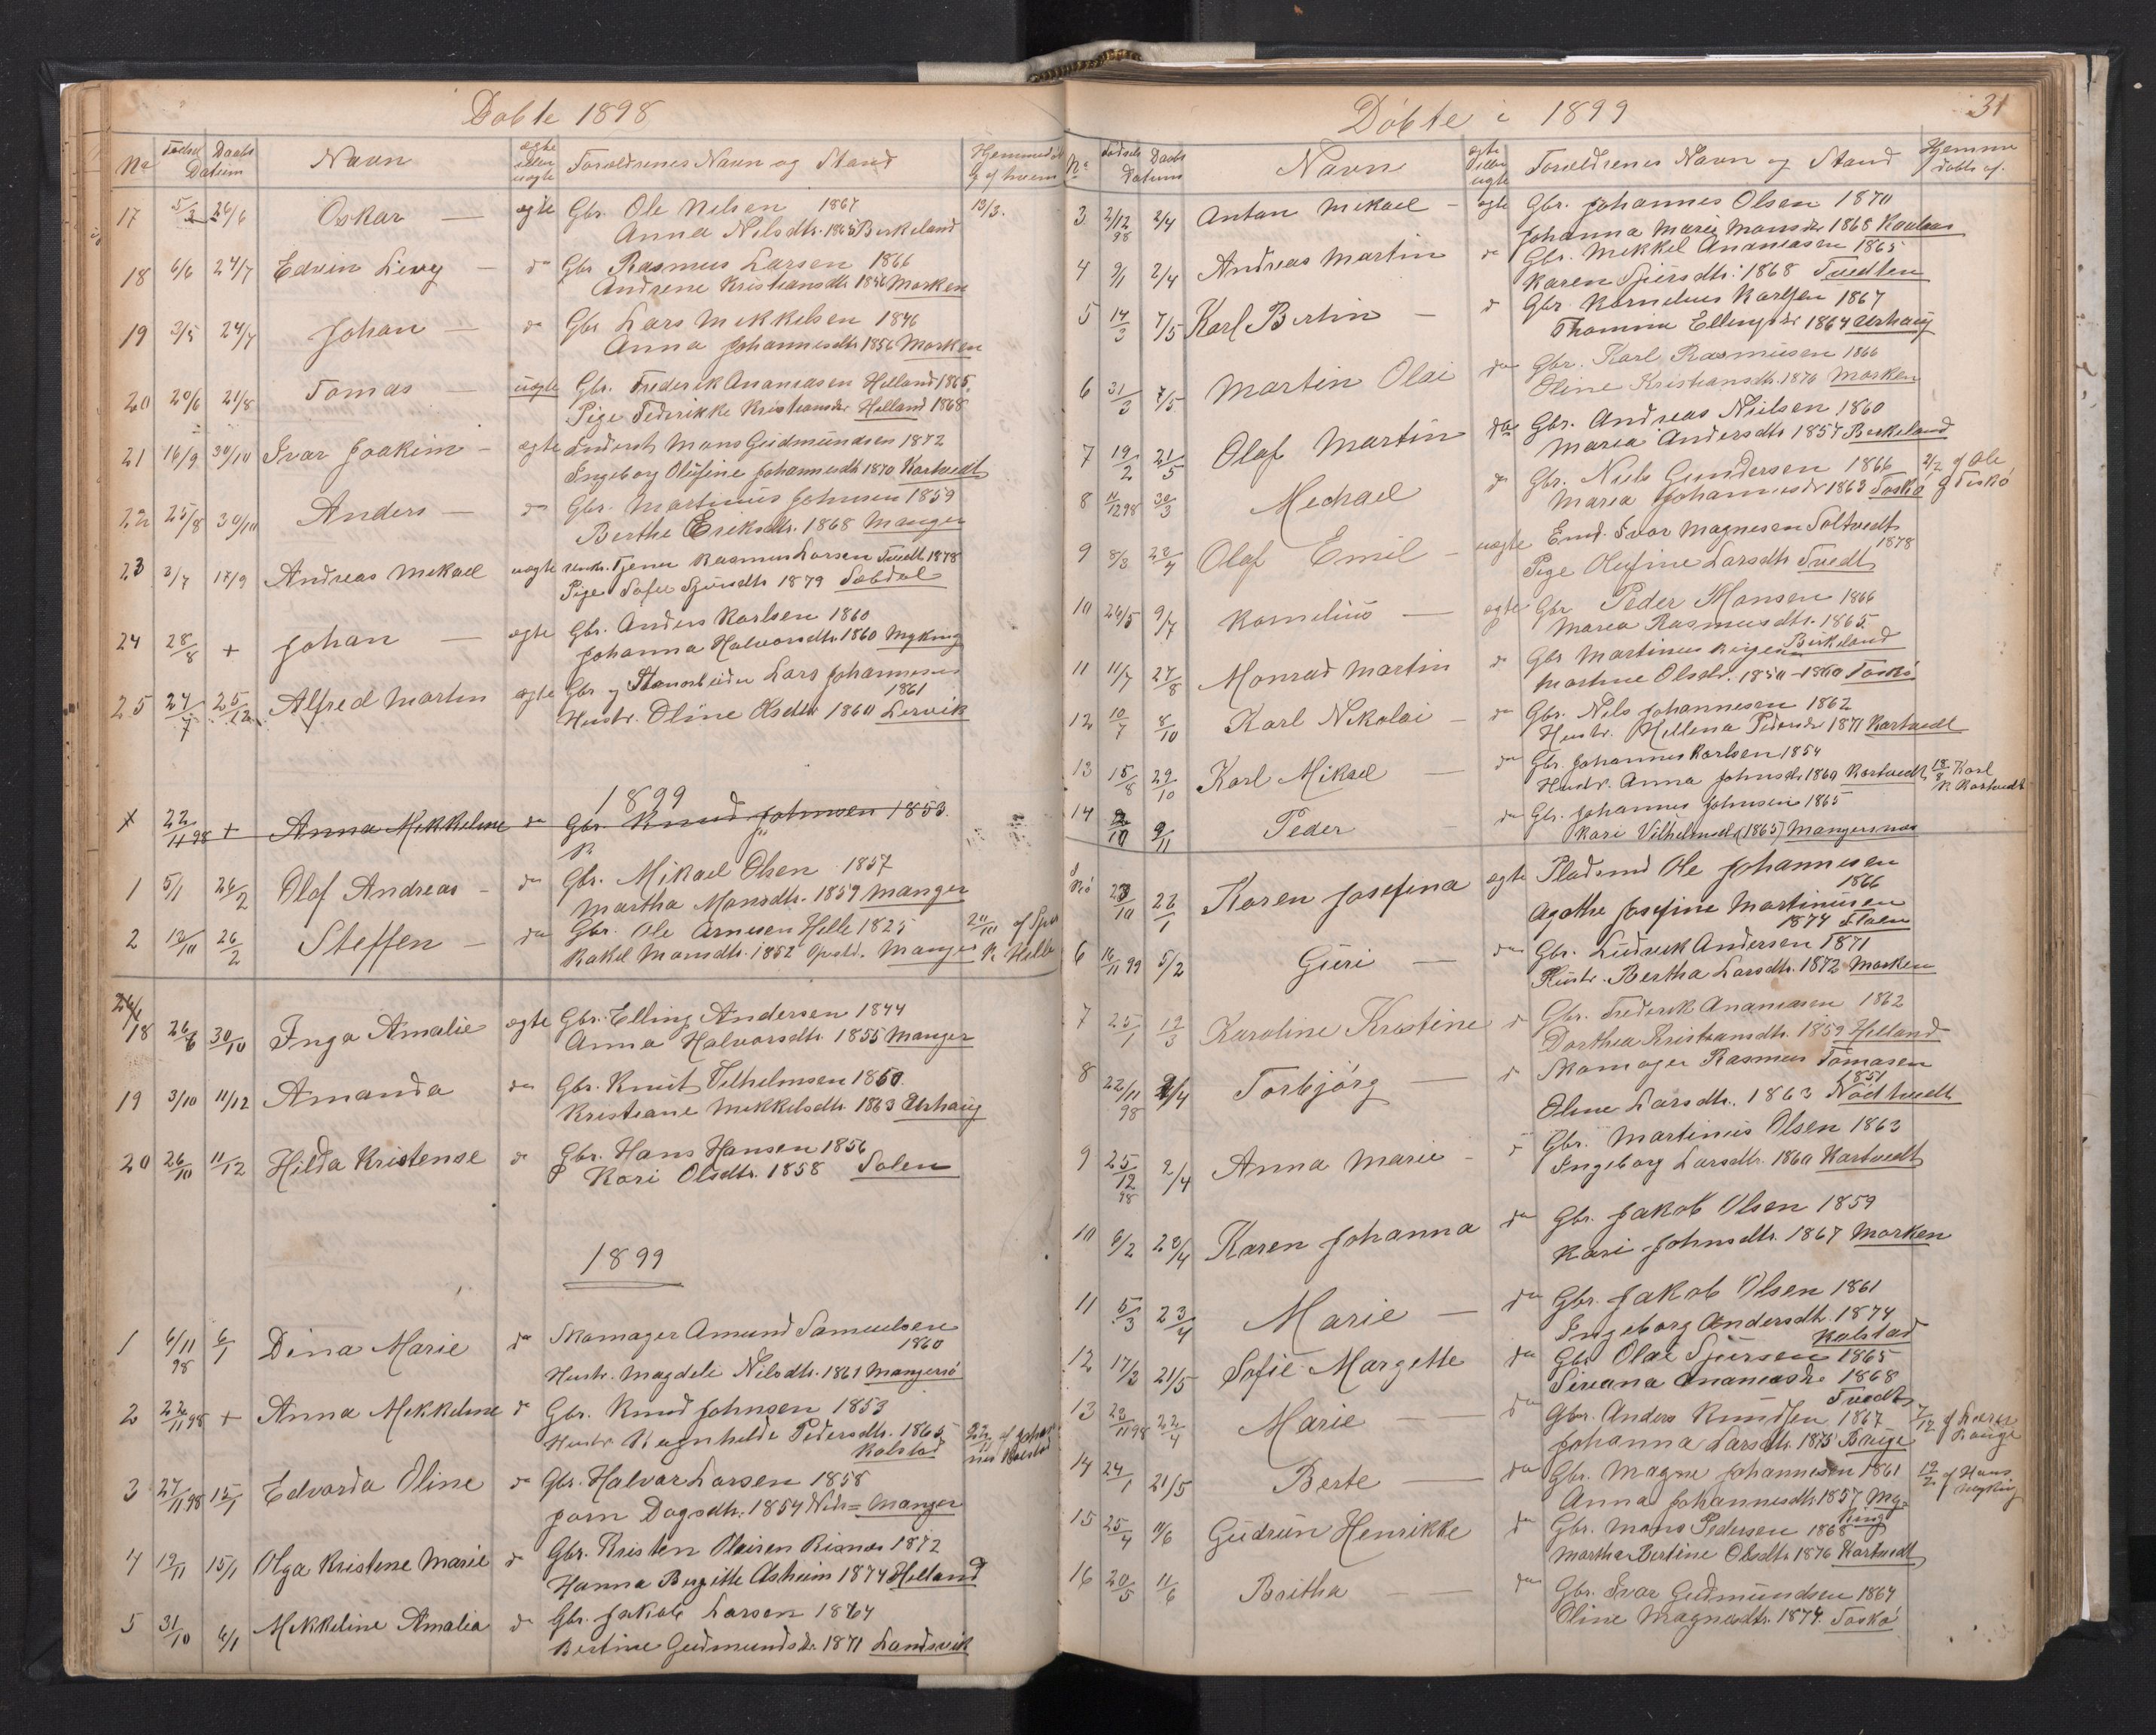 Døbte 1898
No Fødsel Daabs Datum Navn ægte eller uægte Forældrenes Navn og Stand Hjemmedøbt af hvem
17 5/3 26/6 Oskar — ægte Gbr. Ole Nilsen 1867 13/3.
Anna Nilsdtr. 1865 Birkeland
18 6/6 24/7 Edvin Levy — do Gbr Rasmus Larsen 1866
Andrene Kristiansdtr 1846 Marken
19 3/5 24/7 Johan — do Gbr Lars Mekkelsen 1846
Anna Johannesdtr 1856 Marken
20 20/6 21/8 Tomas — uægte Gbr. Frederik Ananiasen Helland 1865
Pige Federikke Kristiansdr Helland 1868
21 16/9 30/10 Ivar Joakim — ægte Inderst Mons Gudmundsen 1872
Ingeborg Olufine Johannesdtr 1870 Kartvedt
22 25/8 30/10 Anders — do Gbr. Martinus Johnsen 1859
Berthe Eriksdtr. 1868 Manger
23 3/7 18/9 Andreas Mekael uægte Tjener Rasmus Larsen Tvedt 1878
Pige Sofie Sjursdtr 1879 Sæbdal
24 28/8 + Johan — ægte Gbr. Anders Karlsen 1860
Johanna Halvorsdtr. 1860 Myking
25 27/7 25/12 Alfred Martin ægte Gbr og Stenarbeider Lars Johannesen 1861
Hustr. Oline Olsdtr 1860 Lervik
1899
22/11 98 + Anna Mekkeline do Gbr. Knud Johnsen 1853.
1 5/1 26/2 Olaf Andreas — do Gbr. Mikael Olsen 1857
Martha Monsdtr. 1859 Manger
2 12/11 26/2 Steffen — do Gbr. Ole Arnesen Helle 1825 20/11 af
Rakel Monsdtr. 1852 Manger Helle
18 26/6 30/10 Inga Amalie ægte Gbr. Elling Andersen 1844
Anna Halvorsdtr 1855 Manger
19 3/10 11/12 Amanda do Gbr. Knut Vilhelmsen 1860.
Kristiane Mekkelsdtr 1863 Urhaug
20 26/10 11/12 Hilda Kristense do Gbr. Hans Hansen 1856
Kari Olsdtr. 1858 Solen
1899
1 6/11 98 6/1 Dina Marie do Skomager Amund Samuelsen 1860
Hustr. Magdeli Nilsdtr. 1861 Mangersø
2 22/11 98 + Anna Mekkeline do Gbr. Knud Johnsen 1853
Hustr Ragnhilde Pedersdtr. 1865 Kolstad 22/11 af Johannes Kolstad
3 27/11 98 15/1 Edvarda Oline do Gbr. Halvor Larsen 1858
Jorn Dagsdtr. 1854 Manger
4 12/11 15/1 Olga Kristine Marie do Gbr. Kristen Olaisen Risnes 1872
Hanna Birgitte Asheim 1874 Helland
5 31/10 6/1 Mekkeline Amalia do Gbr. Jakob Larsen 1864
Bertine Gudmundsdr. 1871 Landsvik
Døbte i 1899 31
No Fødsels Daabs Datum Navn ægte eller uægte Forældrenes Navn og Stand Hjemmedøbt af.
3 2/12 98 2/4 Anton Mekael — ægte Gbr. Johannes Olsen 1870
Johanna Marie Monsdr 1868
4 9/1 2/4 Andreas Martin do Gbr. Mekkel Ananiasen 1865
Karen Sjursdtr. 1868 Tvedten
5 14/3 7/5 Karl Bertin — do Gbr Kornelius Karlsen 1867
Thomine Ellingsdr 1864 Urhaug
6 31/3 7/5 Martin Olai do Gbr. Karl Rasmussen 1866
Oline Kristiansdtr. 1876 Marken
7 19/2 21/5 Olaf Martin do Gbr. Andreas Nielsen 1860
Maria Andersdtr 1857 Birkeland
8 11/12 98 30/3 Mechael do Gbr. Niels Gundersen 1866 2/2 af Ole
Maria Johannesdr 1863 Toskø G Toskø
9 8/3 23/4 Olaf Emil — uægte Emd. Ivar Magnesen Soltvedt
Pige Olufine Larsdtr Tvedt 1878
10 26/5 9/7 Kornelius — ægte Gbr Peder Monsen 1866
Maria Rasmusdtr. 1865 Birkeland
11 11/7 27/8 Monrad Martin do Gbr Martinus
Martine Olsdtr. 1850-1860 Toskø
12 10/7 8/10 Karl Nikolai — do Gbr. Nils Johannesen 1862
Hustr. Hellena Pedersdr 1871 Kartvedt
13 15/8 29/10 Karl Mikael — do Gbr. Johannes Karlsen 1854
Hustr. Anna Johnsdr 1860 Kartvedt 18/8 Karl K Kartvedt
14 2/10 9/11 Peder do Gbr. Johannes Johnsen 1865
Kari Vilhelmsd. (1865) Mangersnes
23/10 22/1 Karen Josefina ægte Pladsmd Ole Johannesen 1866
Agathe Josefine Martinusen 1874 Floen
6 16/11 99 5/2 Guri — do Gbr. Ludvik Andersen 1871
Hustr. Bertha Larsdtr. 1872 Marken
7 25/1 19/3 Karoline Kristine do Gbr. Frederik Ananiasen 1862
Dorthea Kristiansdtr. 1859 Helland
8 22/11 98 2/4 Torbjørg — do Skomager Rasmus Tomasen 1851
Oline Larsdtr. 1863 Nødtvedt
9 25/12 98 2/4 Anna Marie — do Gbr. Martinus Olsen 1863
Ingeborg Larsdtr. 1860 Kartvedt
10 6/2 23/4 Karen Johanna do Gbr. Jakob Olsen 1859
Kari Johnsdtr. 1867 Marken
11 5/3 23/4 Marie — do Gbr. Jakob Olsen 1861
Ingeborg Andersdtr. 1874 Kolstad
12 17/3 21/5 Sofie Margette do Gbr Olai Sjursen 1865
Siriana Ananiasdr 1868 Tvedt
13 23/11 98 23/4 Marie — do Gbr. Anders Knudsen 1867 7/12 af
Johanna Larsdtr. 1875 Bauge Bauge
14 24/1 21/5 Berte — do Gbr. Magne Johannesen 1861 19/2 af Hans Myking
Anna Johannesdtr 1857 Myking
15 25/4 11/6 Gudrun Henrikke do Gbr. Mons Pedersen 1868
Martha Bertine Olsdtr 1876 Kartvedt
16 20/5 11/6 Britha — do Gbr. Ivar Gudmundsen 1864
Oline Magnesdtr. 1874. Toskø